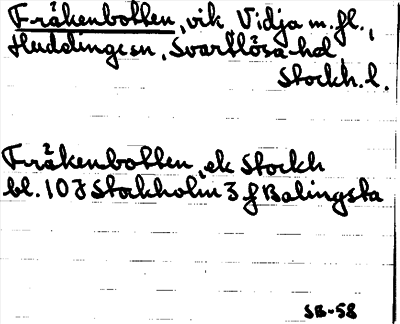 Fräkenbotten, vik, Vidja m.fl.,
Huddinge sn, Svartlösa hd,
Stockh. l.
Fräkenbotten, ek Stockh
bl. 10J Stockholm 3 f Balingsta
SB-58